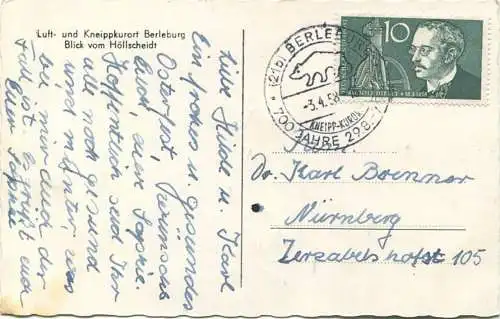 Luft- und Kneippkurort Berleburg
Blick vom Höllscheidt
Liebe Heide u. Karl
Ein frohes u. gesundes
Osterfest, wünscht
Euch, eure Sophie.
Hoffentlich seid Ihr
alle noch gesund
und munter, was
bei mir auch der
Fall ist. Es grüßt euch
Eure Sophie
(21b) BERLEBURG
-3.4.58
KNEIPP-KURORT
700 JAHRE 29.8.-
10
Dr. Karl Brenner
Nürnberg
Zerzabelshofst 105